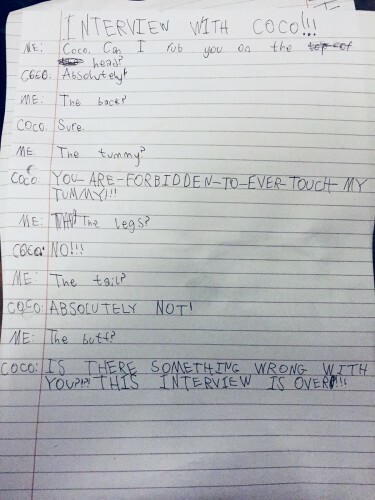 INTERVIEW WITH COCO!!!
ME: Coco. Can I rub you on the top of
head?
COCO: Absolutely!
ME: The back?
COCO: Sure.
ME: The tummy?
COCO: YOU-ARE-FORBIDDEN-TO-EVER-TOUCH MY
TUMMY!!!
ME: The legs?
COCO: NO!!!
ME: The tail?
COCO: ABSOLUTELY NOT!
ME: The butt?
COCO: IS THERE SOMETHING WRONG WITH
YOU?!?! THIS INTERVIEW IS OVER!!!